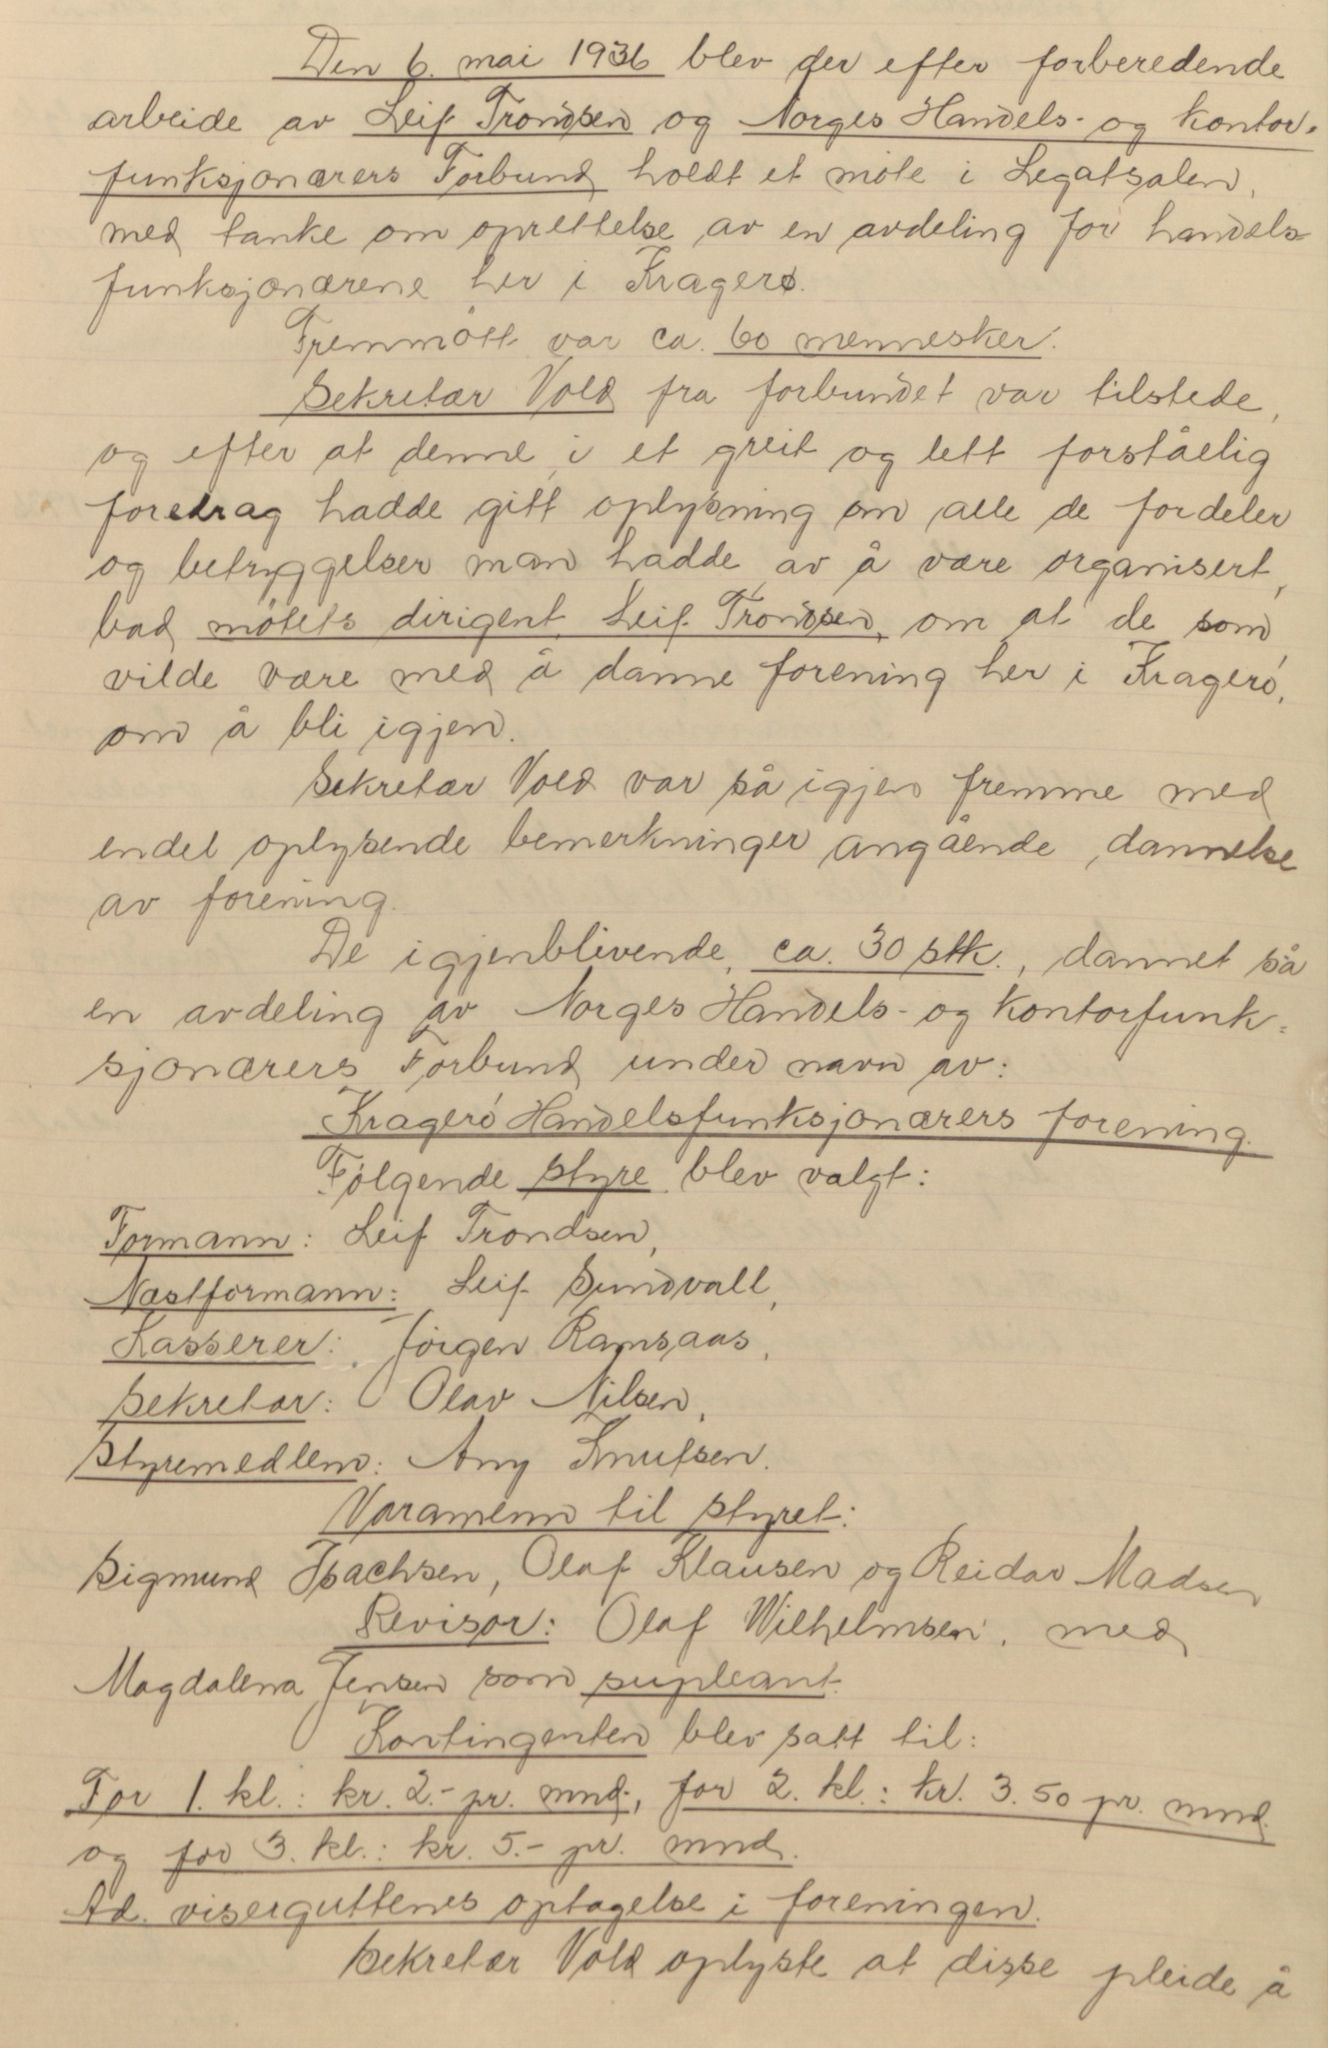 Den 6. mai 1936 blev der efter forberedende
arbeide av Leif Trondsen og Norges Handels- og Kontor-
funksjonærers Forbund holdt et møte i Legatsalen,
med tanke om oprettelse av en avdeling for handels-
funksjonærene her i Kragerø.
Fremmött var ca. 60 mennesker.
Sekretær Vold fra forbundet var tilstede,
og efter at denne, i et greit og lett forståelig
foredrag hadde gitt oplysning om alle de fordeler
og betryggelser man hadde av å være organisert,
bad mötets dirigent, Leif Trondsen, om at de som
vilde være med å danne forening her i Kragerö,
om å bli igjen.
Sekretær Vold var så igjen fremme med
endel oplysende bemerkninger angående dannelse
av forening.
De igjenblivende, ca. 30 stk., dannet så
en avdeling av Norges Handels- og Kontorfunk-
sjonærers Forbund under navn av:
Kragerö Handelsfunksjonærers forening.
Følgende styre blev valgt:
Formann: Leif Trondsen,
Næstformann: Leif Sundvall,
Kasserer: Jörgen Ramsaas,
Sekretær: Olav Nilsen,
Styremedlem: Any Knutsen.
Varamenn til styret:
Sigmund Isachsen, Olaf Klausen og Reidar Madsen
Revisor: Olaf Wilhelmsen, med
Magdalena Jensen som supleant.
Kontingenten blev satt til:
For 1. kl.: kr. 2.- pr. mnd., for 2. kl.: kr. 3.50 pr. mnd.
og for 3. kl.: kr. 5.- pr. mnd.
Ad. viserguttenes optagelse i foreningen.
Sekretær Vold oplyste at disse pleide å